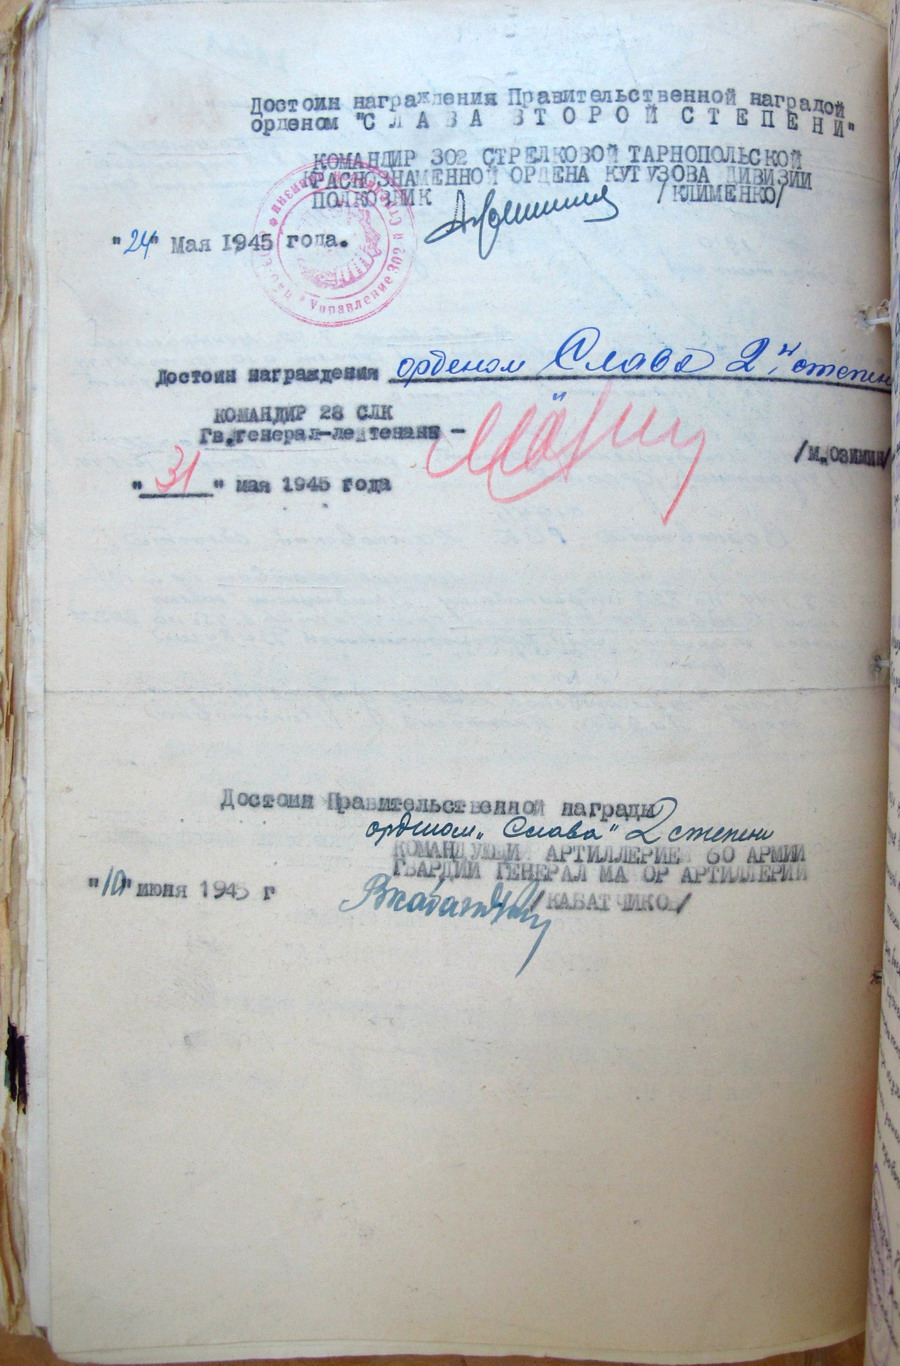 Достоин награждения Правительственной наградой
орденом "С Л А В А В Т О Р О Й С Т Е П Е Н И"
КОМАНДИР 302 СТРЕЛКОВОЙ ТАРНОПОЛЬСКОЙ
КРАСНОЗНАМЕННОЙ ОРДЕНА КУТУЗОВА ДИВИЗИИ
ПОЛКОВНИК /КЛИМЕНКО/
"24" Мая 1945 года.
Управление 302
Достоин награждения орденом Слава 2й степени
КОМАНДИР 28 СЛК
Гв.генерал-лейтенант -
/М.ОЗИМИН/
"31" мая 1945 года
Достоин Правительственной награды
орденом „Слава" 2 степени
КОМАНДУЮЩИЙ АРТИЛЛЕРИЕЙ 60 АРМИИ
ГВАРДИИ ГЕНЕРАЛ МАЙОР АРТИЛЛЕРИИ
"10" июня 1945 г /КАБАТЧИКОВ/